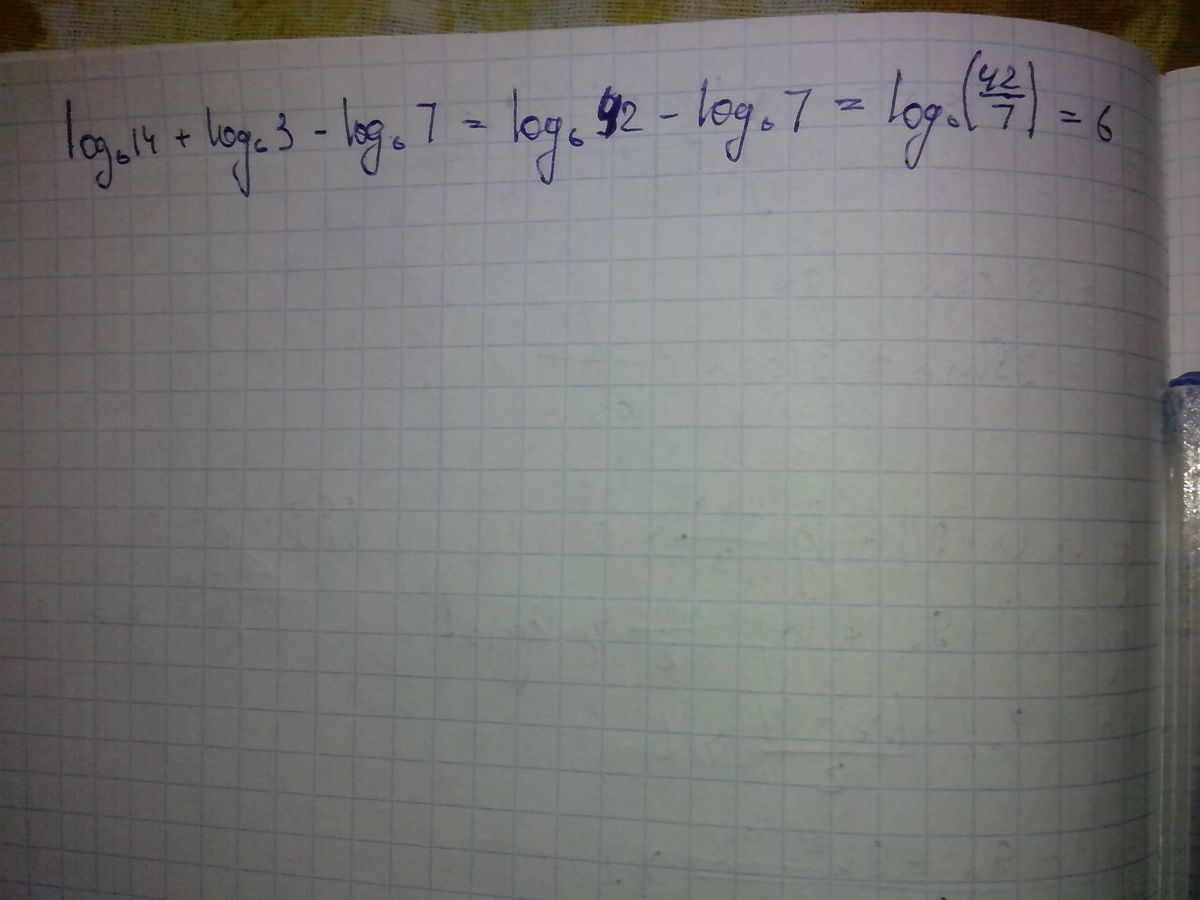 log₆14 + log₆3 - log₆7 = log₆42 - log₆7 = log₆(42/7) = 6